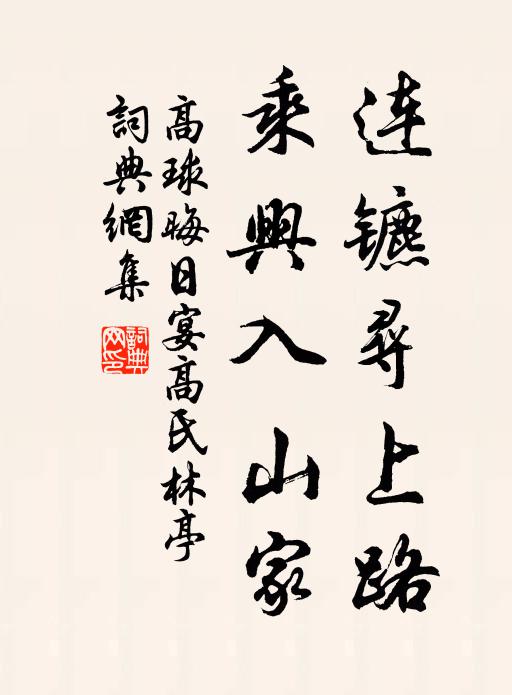 连镳寻上路
乘興入山家
高球晦日宴高氏林亭
詞典網集
詞典網印